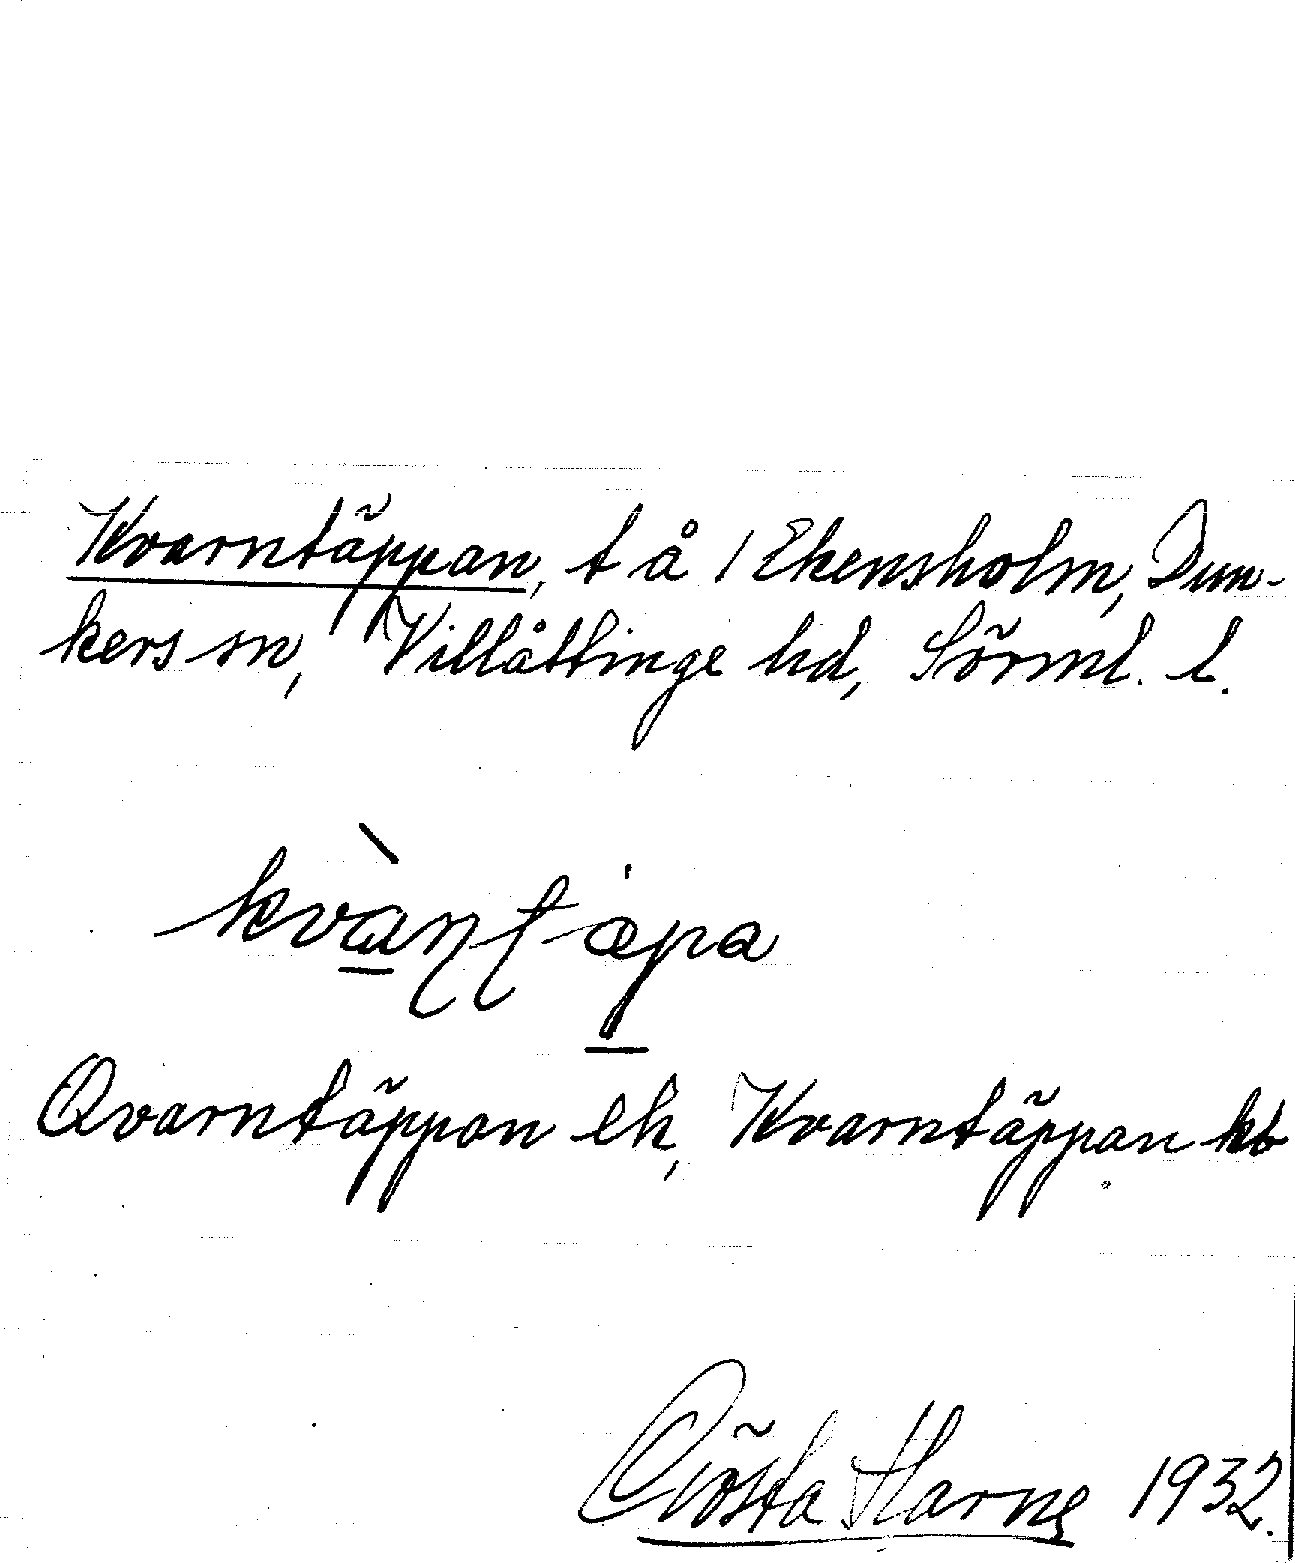 Kvarntäppan, t å 1 Ekensholm, Dun-
kers sn, Villåttinge hd, Sörml. l.
Qvarntäppan ek, Kvarntäppan kb
Gösta Harne 1932.